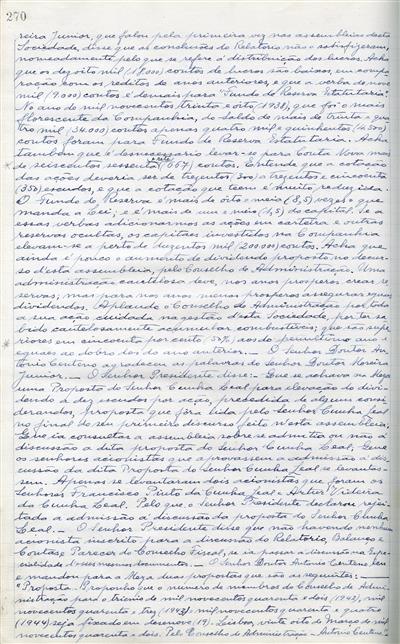 270
reira Junior, que falou pela primeira vez nas assembleias desta
Sociedade, disse que as conclusões do Relatorio não o satisfizeram,
nomeadamente pelo que se refere á distribuição dos lucros. Acha
que os dezoito mil (18.000) contos de lucros são baixos, em compa-
ração com os reditos de anos anteriores, e que a verba de nove
mil (9.000) contos é demais para "Fundo de Reserva Estatutaria".
No ano de mil novecentos trinta e oito (1938), que foi o mais
florescente da Companhia, do saldo de mais de trinta e qua-
tro mil (34.000) contos apenas quatro mil e quinhentos (4.500)
contos foram para Fundo de Reserva Estatutaria. Acha
tambem que é desnecessario levar-se para Conta Nova mais
de seiscentos sessenta e sete contos. Entende que a cotação
das ações deveria ser de trezentos (300) a trezentos e cincoenta
(350) escudos, e que a cotação que teem é muito reduzida.
O Fundo de Reserva é mais de oito e meia (8,5) vezes o que
manda a Lei, e é mais de um e meio (1,5) do capital. Se a
essas verbas adicionarmos as ações em carteira e outras
reservas ocultas, os capitais investidos na Companhia
elevam-se a perto de duzentos mil (200.000) contos. Acha que
ainda é pouco o aumento de dividendo proposto no decur-
so d'esta assembleia, pelo Conselho de Administração. Uma
administração cautelosa deve, nos anos prosperos, crear re-
servas; mas para nos anos menos prosperos assegurar iguaes
dividendos. Aplaude o Conselho de Administração por toda
a sua ação cuidada na gestão d'esta Sociedade, por ter sa-
bido cautelosamente acumular combustiveis, que são supe-
riores em cincoenta por cento (50%) aos do penultimo ano e
eguaes ao dobro dos do ano anterior. — O Senhor Doutor An-
tonio Centeno agradeceu as palavras do Senhor Doutor Moreira
Junior. — O Senhor Presidente disse: — Que se achava na Meza
uma Proposta do Senhor Cunha Leal para elevação do divi-
dendo a dez escudos por ação, precedida de alguns consi-
derandos, proposta que fôra lida pelo Senhor Cunha Leal
no final do seu primeiro discurso feito n'esta assembleia;
Que ia consultar a assembleia sobre se admitia ou não á
discussão a dita proposta do Senhor Cunha Leal; Que
os senhores acionistas que aprovassem a admissão á dis-
cussão da dita Proposta do Senhor Cunha Leal se levantas-
sem. Apenas se levantaram dois acionistas que foram os
Senhores Francisco Pinto da Cunha Leal e Artur Videira
da Cunha Leal. Pelo que o Senhor Presidente declarou rejei-
tada a admissão á discussão da proposta do Senhor Cunha
Leal. — O Senhor Presidente disse que não havendo nenhum
acionista inscrito para a discussão do Relatorio, Balanço e
Contas e Parecer do Conselho Fiscal, se ia passar á discussão na espe-
cialidade d'esses mesmos documentos. — O Senhor Doutor Antonio Centeno leu
e mandou para a Meza duas propostas que são as seguintes: —
"Proposta. Proponho que o numero de membros do Conselho de Admi-
nistração para o trienio de mil novecentos quarenta e dois (1942), mil
novecentos quarenta e tres (1943) e mil novecentos quarenta e quatro
(1944) seja fixado em desenove (19). Lisboa, vinte oito de Março de mil
novecentos quarenta e dois. Pelo Conselho de Administração — Antonio Cente-